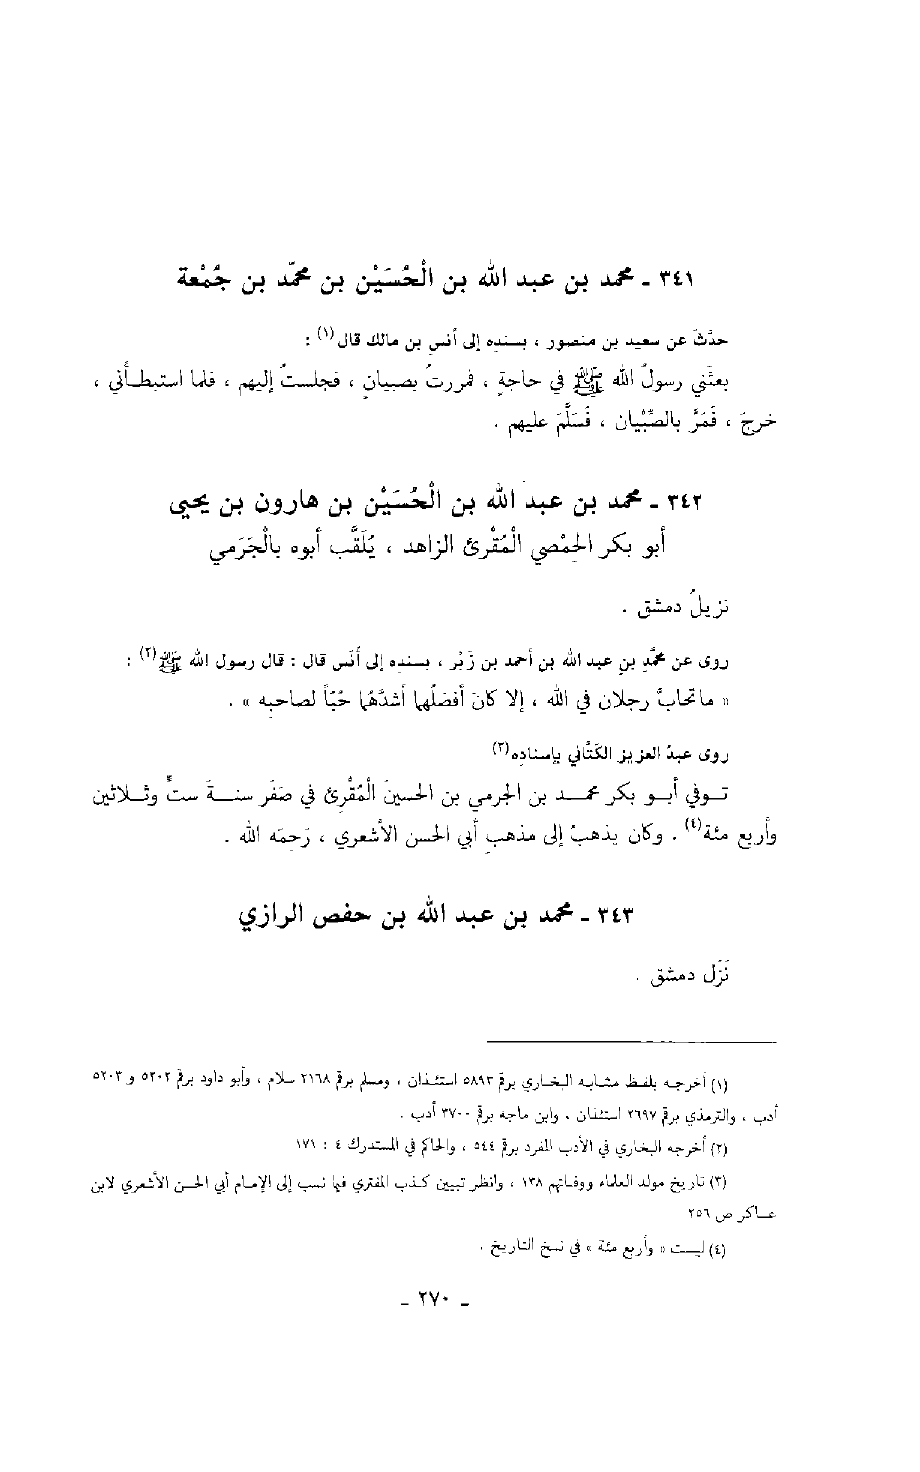 ٣٤١ ـ محمد بن عبد الله بن الْحُسَيْن بن محمّد بن جُمْعة
حدَّث عن سعيد بن منصور ، بسنده إلى أنسِ بن مالك قال(١) :
بعثَني رسولُ الله ﷺ في حاجةٍ ، فمررتُ بصبيانٍ ، فجلستُ إليهم ، فلما استبطأني ،
خرجَ ، فَمَرَّ بالصِّبْيان ، فَسَلَّمَ عليهم .
٣٤٢ ـ محمد بن عبد الله بن الْحُسَيْن بن هارون بن يحيى
أبو بكر الحِمْصي الْمُقْرئ الزاهد ، يُلَقَّب أبوه بالْجَرَمي
نزيلُ دمشق .
روى عن محمَّدِ بنِ عبد الله بن أحمد بن زَبْر ، بسنده إلى أنَس قال : قال رسول الله ﷺ(٢) :
« ماتحابَّ رجلان في الله ، إلا كان أفضلُهما أشدَّهُما حُبّاً لصاحبه » .
روى عبدُ العزيز الكَتَّاني بإسناده(٣)
تـوفي أبـو بكر محمـد بن الجرمي بن الحسينِ الْمُقْرئ في صَفَر سنـة ستٍّ وثـلاثين
وأربع مئة(٤) . وكان يذهبُ إلى مذهبِ أبي الحسن الأشعري ، رَحِمَه الله .
٣٤٣ ـ محمد بن عبد الله بن حفص الرازي
نَزَل دمشق .
(١) أخرجه بلفـظ مشـابـه البخـاري برقم ٥٨٩٣ استئـذان ، ومسلم برقم ٢١٦٨ سـلام ، وأبو داود برقم ٥٢٠٢ و ٥٢٠٣
أدب ، والترمذي برقم ٢٦٩٧ استئذان ، وابن ماجه برقم ٣٧٠٠ أدب .
(٢) أخرجه البخاري في الأدب المفرد برقم ٥٤٤ ، والحاكم في المستدرك ٤ : ١٧١
(٣) تاريخ مولد العلماء ووفـاتهم ١٣٨ ، وانظر تبيين كـذب المفتري فيما نسب إلى الإمـام أبي الحسن الأشعري لابن
عسـاكر ص ٢٥٦
(٤) ليست « وأربع مئة » في نسخ التاريخ .
ـ ٢٧٠ ـ